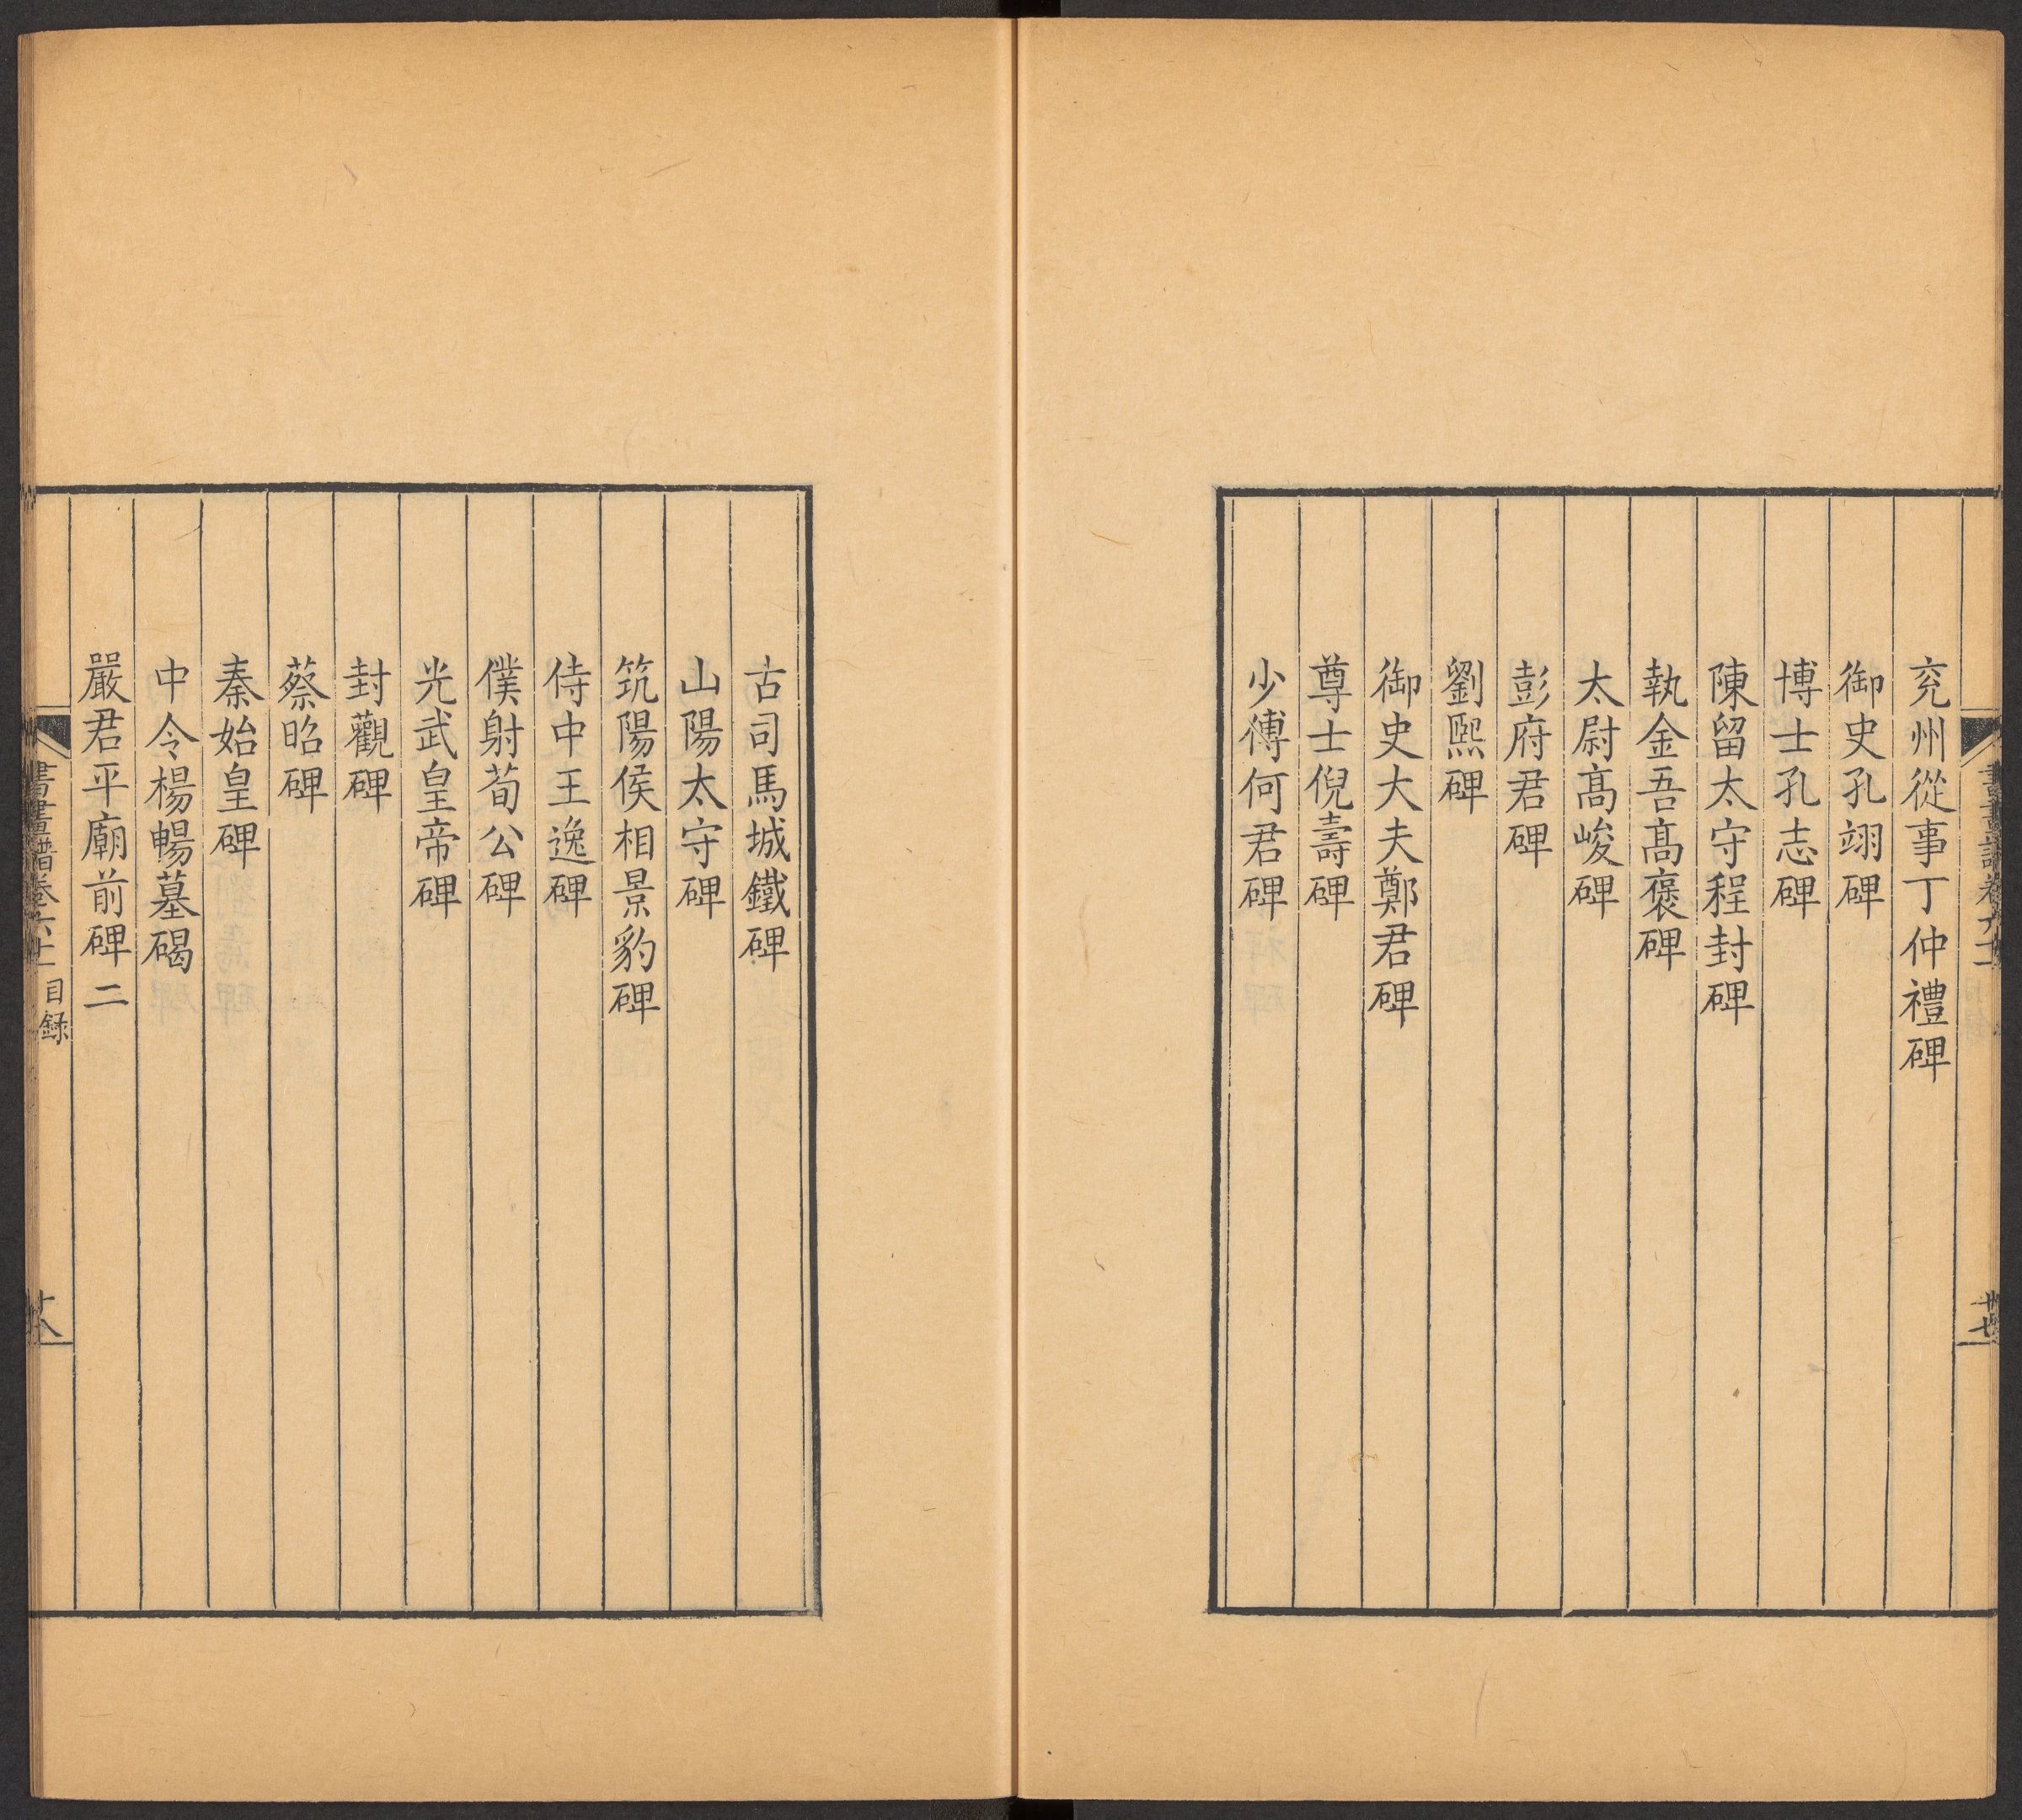 兖州從事丁仲禮碑
御史孔翊碑
博士孔志碑
陳留太守程封碑
執金吾髙褒碑
太尉髙峻碑
彭府君碑
劉熈碑
御史大夫鄭君碑
尊士倪壽碑
少傅何君碑
古司馬城鐵碑
山陽太守碑
筑陽侯相景豹碑
侍中王逸碑
僕射荀公碑
光武皇帝碑
封觀碑
蔡昭碑
秦始皇碑
中令楊暢墓碣
嚴君平廟前碑二
書畫譜卷六十一 目録